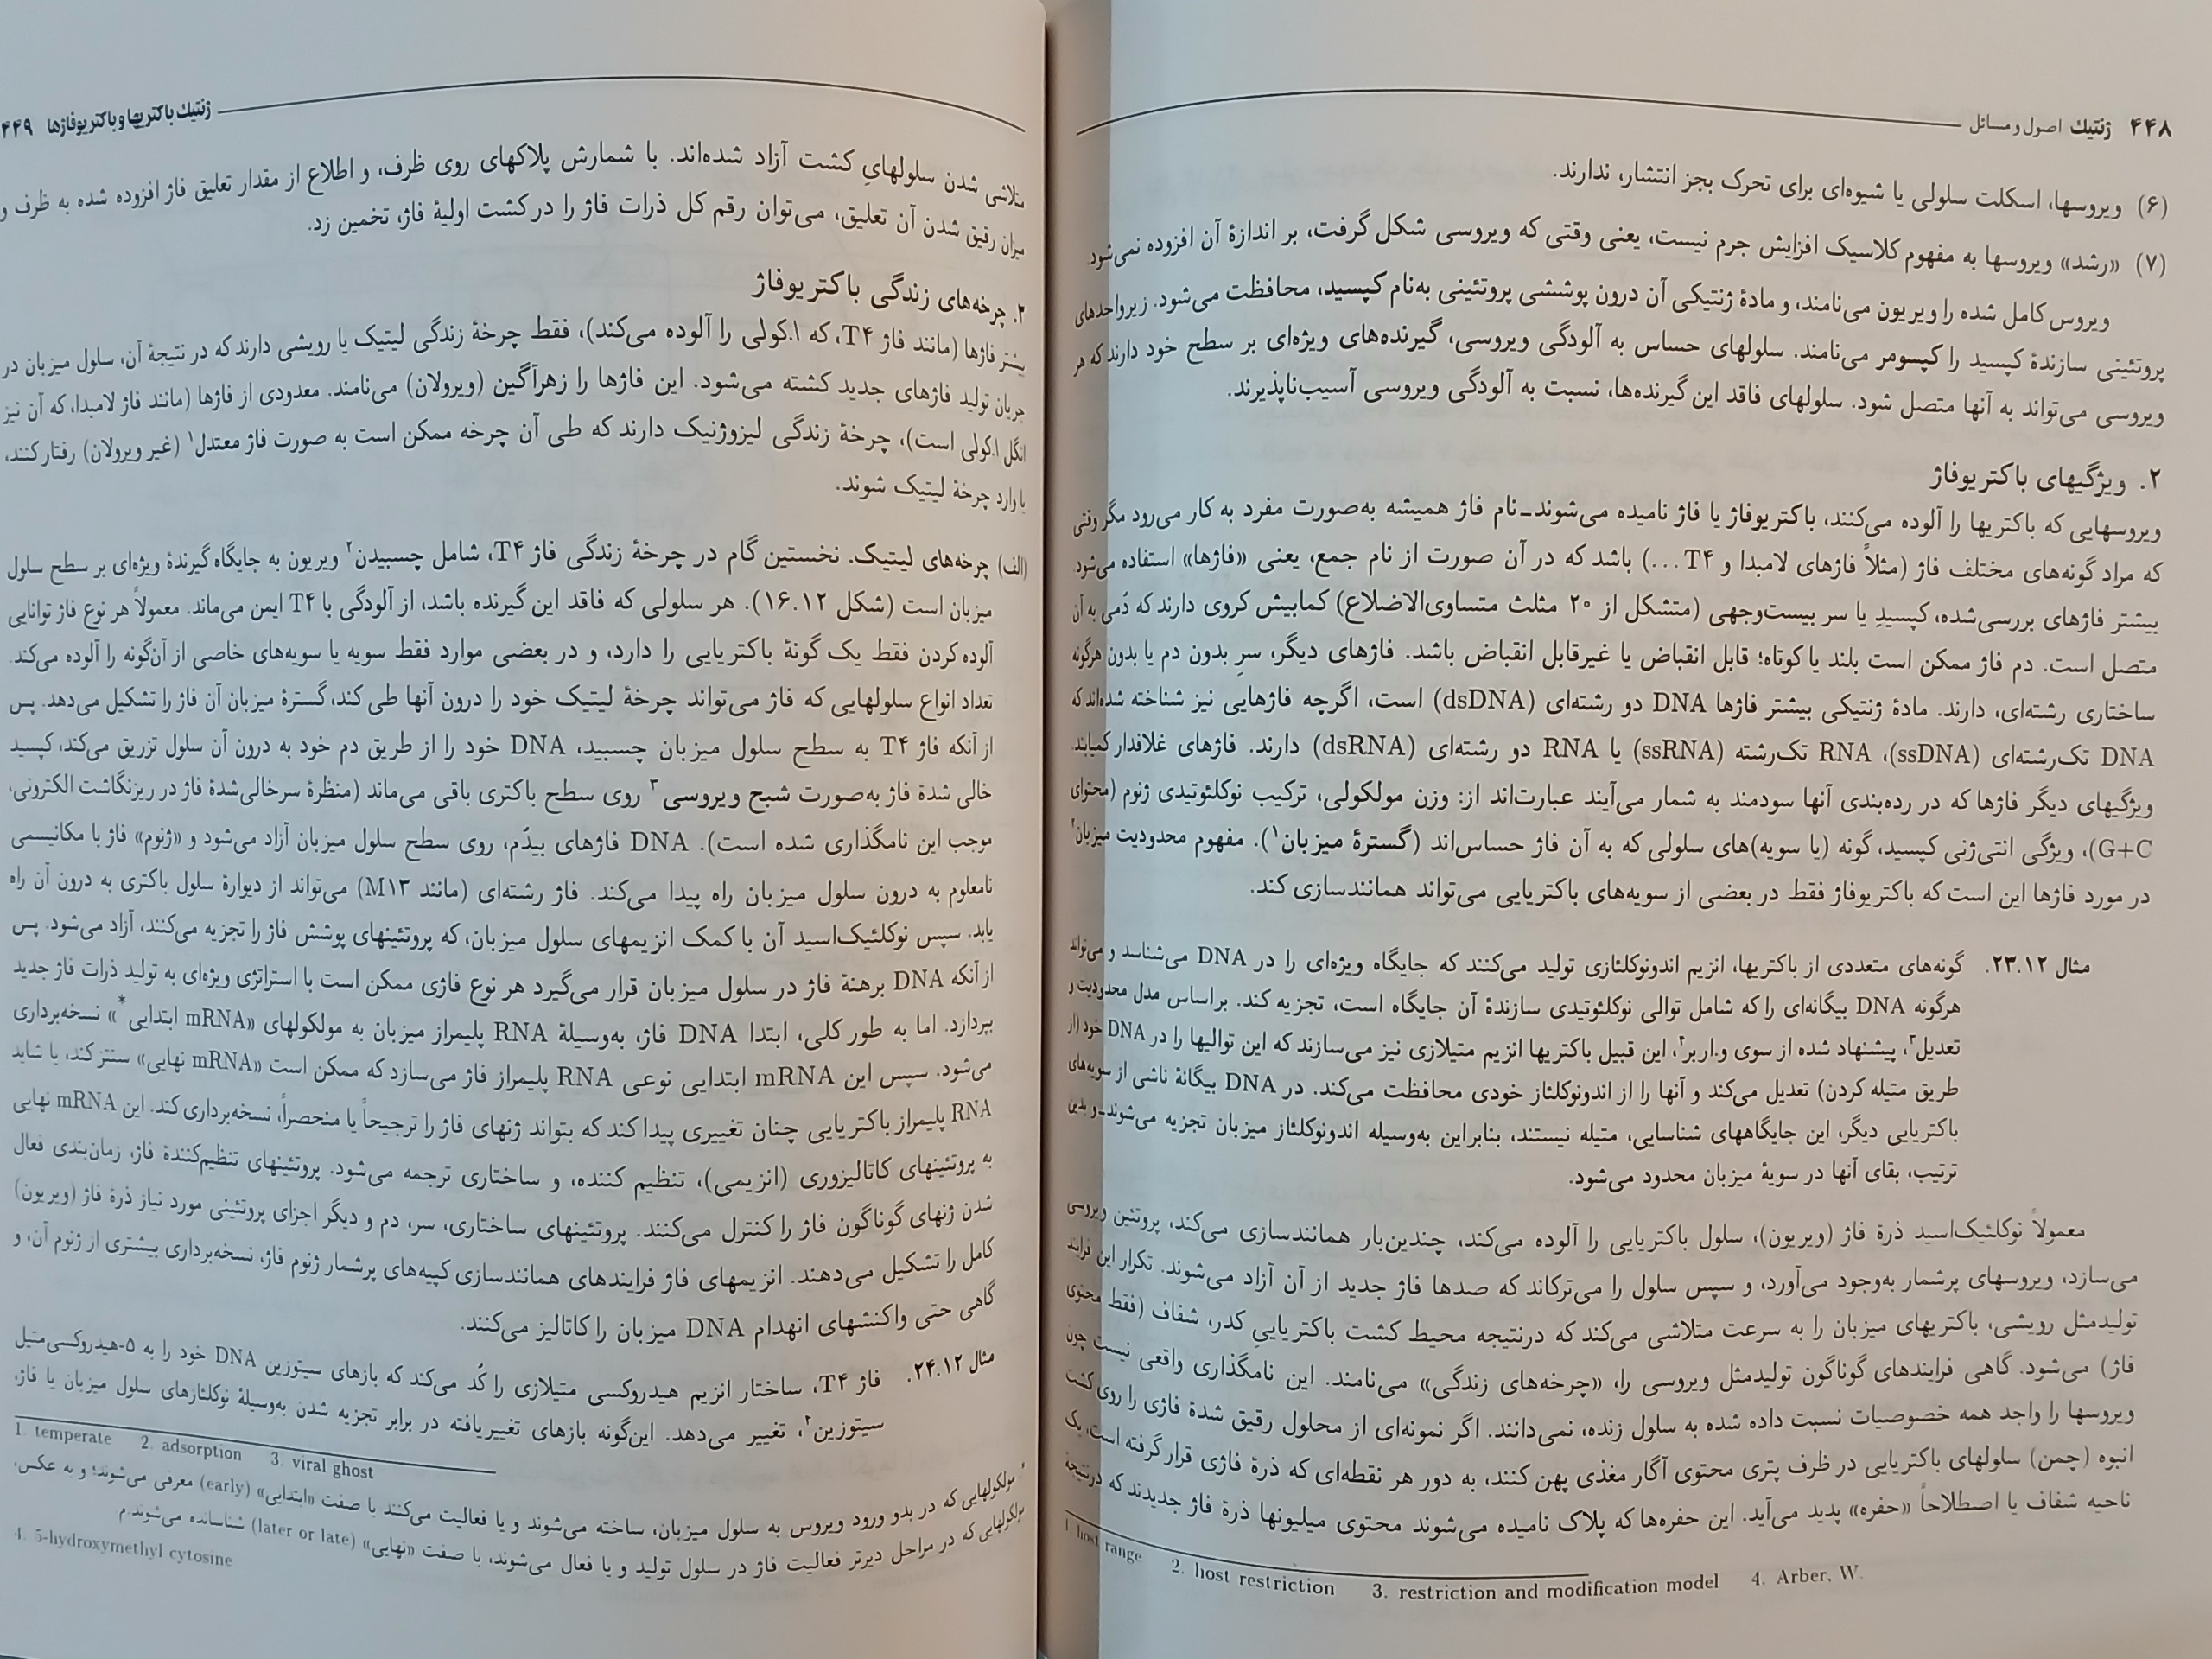 ۴۴۸ ژنتیك اصول و مسائل
(۶) ویروسها، اسکلت سلولی یا شیوه‌ای برای تحرک بجز انتشار، ندارند.
(۷) «رشد» ویروسها به مفهوم کلاسیک افزایش جرم نیست، یعنی وقتی که ویروسی شکل گرفت، بر اندازهٔ آن افزوده نمی‌شود.
ویروس کامل شده را ویریون می‌نامند، و مادهٔ ژنتیکی آن درون پوششی پروتئینی به‌نام کپسید، محافظت می‌شود. زیرواحدهای
پروتئینی سازندهٔ کپسید را کپسومر می‌نامند. سلولهای حساس به آلودگی ویروسی، گیرنده‌های ویژه‌ای بر سطح خود دارند که هر
ویروسی می‌تواند به آنها متصل شود. سلولهای فاقد این گیرنده‌ها، نسبت به آلودگی ویروسی آسیب‌ناپذیرند.
۲. ویژگیهای باکتریوفاژ
ویروسهایی که باکتریها را آلوده می‌کنند، باکتریوفاژ یا فاژ نامیده می‌شوند ــ نام فاژ همیشه به‌صورت مفرد به کار می‌رود مگر وقتی
که مراد گونه‌های مختلف فاژ (مثلاً فاژهای لامبدا و T۴ ...) باشد که در آن صورت از نام جمع، یعنی «فاژها» استفاده می‌شود.
بیشتر فاژهای بررسی‌شده، کپسیدِ یا سر بیست‌وجهی (متشکل از ۲۰ مثلث متساوی‌الاضلاع) کمابیش کروی دارند که دُمی به آن
متصل است. دم فاژ ممکن است بلند یا کوتاه؛ قابل انقباض یا غیرقابل انقباض باشد. فاژهای دیگر، سرِ بدون دم یا بدون هرگونه
ساختاری رشته‌ای، دارند. مادهٔ ژنتیکی بیشتر فاژها DNA دو رشته‌ای (dsDNA) است، اگرچه فاژهایی نیز شناخته شده‌اند که
DNA تک‌رشته‌ای (ssDNA)، RNA تک‌رشته (ssRNA) یا RNA دو رشته‌ای (dsRNA) دارند. فاژهای غلافدار کمیابند.
ویژگیهای دیگر فاژها که در رده‌بندی آنها سودمند به شمار می‌آیند عبارت‌اند از: وزن مولکولی، ترکیب نوکلئوتیدی ژنوم (محتوای
G+C)، ویژگی انتی‌ژنی کپسید، گونه (یا سویه)های سلولی که به آن فاژ حساس‌اند (گسترهٔ میزبان۱). مفهوم محدودیت میزبان۲
در مورد فاژها این است که باکتریوفاژ فقط در بعضی از سویه‌های باکتریایی می‌تواند همانندسازی کند.
مثال ۲۳.۱۲. گونه‌های متعددی از باکتریها، انزیم اندونوکلئازی تولید می‌کنند که جایگاه ویژه‌ای را در DNA می‌شناسد و می‌تواند
هرگونه DNA بیگانه‌ای را که شامل توالی نوکلئوتیدی سازندهٔ آن جایگاه است، تجزیه کند. براساس مدل محدودیت و
تعدیل۳، پیشنهاد شده از سوی و.اربر۴، این قبیل باکتریها انزیم متیلازی نیز می‌سازند که این توالیها را در DNA خود (از
طریق متیله کردن) تعدیل می‌کند و آنها را از اندونوکلئاز خودی محافظت می‌کند. در DNA بیگانهٔ ناشی از سویه‌های
باکتریایی دیگر، این جایگاههای شناسایی، متیله نیستند، بنابراین به‌وسیله اندونوکلئاز میزبان تجزیه می‌شوند ــ و بدین
ترتیب، بقای آنها در سویهٔ میزبان محدود می‌شود.
معمولاً نوکلئیک‌اسید ذرهٔ فاژ (ویریون)، سلول باکتریایی را آلوده می‌کند، چندین‌بار همانندسازی می‌کند، پروتئین ویروسی
می‌سازد، ویروسهای پرشمار به‌وجود می‌آورد، و سپس سلول را می‌ترکاند که صدها فاژ جدید از آن آزاد می‌شوند. تکرار این فرایند
تولیدمثل رویشی، باکتریهای میزبان را به سرعت متلاشی می‌کند که درنتیجه محیط کشت باکتریاییِ کدر، شفاف (فقط محتوی
فاژ) می‌شود. گاهی فرایندهای گوناگون تولیدمثل ویروسی را، «چرخه‌های زندگی» می‌نامند. این نامگذاری واقعی نیست چون
ویروسها را واجد همه خصوصیات نسبت داده شده به سلول زنده، نمی‌دانند. اگر نمونه‌ای از محلول رقیق شدهٔ فاژی را روی کشت
انبوه (چمن) سلولهای باکتریایی در ظرف پتری محتوی آگار مغذی پهن کنند، به دور هر نقطه‌ای که ذرهٔ فاژی قرار گرفته است، یک
ناحیه شفاف یا اصطلاحاً «حفره» پدید می‌آید. این حفره‌ها که پلاک نامیده می‌شوند محتوی میلیونها ذرهٔ فاژ جدیدند که درنتیجه
1. host range 2. host restriction 3. restriction and modification model 4. Arber, W.
ژنتیك باکتریها و باکتریوفاژها ۴۴۹
متلاشی شدن سلولهایِ کشت آزاد شده‌اند. با شمارش پلاکهای روی ظرف، و اطلاع از مقدار تعلیق فاژ افزوده شده به ظرف و
میزان رقیق شدن آن تعلیق، می‌توان رقم کل ذرات فاژ را در کشت اولیهٔ فاژ، تخمین زد.
۳. چرخه‌های زندگی باکتریوفاژ
بیشتر فاژها (مانند فاژ T۴، که ا.کولی را آلوده می‌کند)، فقط چرخهٔ زندگی لیتیک یا رویشی دارند که در نتیجهٔ آن، سلول میزبان در
جریان تولید فاژهای جدید کشته می‌شود. این فاژها را زهرآگین (ویرولان) می‌نامند. معدودی از فاژها (مانند فاژ لامبدا، که آن نیز
انگل ا.کولی است)، چرخهٔ زندگی لیزوژنیک دارند که طی آن چرخه ممکن است به صورت فاژ معتدل۱ (غیر ویرولان) رفتار کنند،
یا وارد چرخهٔ لیتیک شوند.
(الف) چرخه‌های لیتیک. نخستین گام در چرخهٔ زندگی فاژ T۴، شامل چسبیدن۲ ویریون به جایگاه گیرندهٔ ویژه‌ای بر سطح سلول
میزبان است (شکل ۱۶.۱۲). هر سلولی که فاقد این گیرنده باشد، از آلودگی با T۴ ایمن می‌ماند. معمولاً هر نوع فاژ توانایی
آلوده کردن فقط یک گونهٔ باکتریایی را دارد، و در بعضی موارد فقط سویه یا سویه‌های خاصی از آن‌گونه را آلوده می‌کند.
تعداد انواع سلولهایی که فاژ می‌تواند چرخهٔ لیتیک خود را درون آنها طی کند، گسترهٔ میزبان آن فاژ را تشکیل می‌دهد. پس
از آنکه فاژ T۴ به سطح سلول میزبان چسبید، DNA خود را از طریق دم خود به درون آن سلول تزریق می‌کند، کپسید
خالی شدهٔ فاژ به‌صورت شبح ویروسی۳ روی سطح باکتری باقی می‌ماند (منظرهٔ سرخالی‌شدهٔ فاژ در ریزنگاشت الکترونی،
موجب این نامگذاری شده است). DNA فاژهای بیدُم، روی سطح سلول میزبان آزاد می‌شود و «ژنوم» فاژ با مکانیسمی
نامعلوم به درون سلول میزبان راه پیدا می‌کند. فاژ رشته‌ای (مانند M۱۳) می‌تواند از دیوارهٔ سلول باکتری به درون آن راه
یابد. سپس نوکلئیک‌اسید آن با کمک انزیمهای سلول میزبان، که پروتئینهای پوشش فاژ را تجزیه می‌کنند، آزاد می‌شود. پس
از آنکه DNA برهنهٔ فاژ در سلول میزبان قرار می‌گیرد هر نوع فاژی ممکن است با استراتژی ویژه‌ای به تولید ذرات فاژ جدید
بپردازد. اما به طور کلی، ابتدا DNA فاژ، به‌وسیلهٔ RNA پلیمراز میزبان به مولکولهای «mRNA ابتدایی*» نسخه‌برداری
می‌شود. سپس این mRNA ابتدایی نوعی RNA پلیمراز فاژ می‌سازد که ممکن است «mRNA نهایی» سنتز کند، یا شاید
RNA پلیمراز باکتریایی چنان تغییری پیدا کند که بتواند ژنهای فاژ را ترجیحاً یا منحصراً، نسخه‌برداری کند. این mRNA نهایی
به پروتئینهای کاتالیزوری (انزیمی)، تنظیم کننده، و ساختاری ترجمه می‌شود. پروتئینهای تنظیم‌کنندهٔ فاژ، زمان‌بندی فعال
شدن ژنهای گوناگون فاژ را کنترل می‌کنند. پروتئینهای ساختاری، سر، دم و دیگر اجزای پروتئینی مورد نیاز ذرهٔ فاژ (ویریون)
کامل را تشکیل می‌دهند. انزیمهای فاژ فرایندهای همانندسازی کپیه‌های پرشمار ژنوم فاژ، نسخه‌برداری بیشتری از ژنوم آن، و
گاهی حتی واکنشهای انهدام DNA میزبان را کاتالیز می‌کنند.
مثال ۲۴.۱۲. فاژ T۴، ساختار انزیم هیدروکسی متیلازی را کُد می‌کند که بازهای سیتوزین DNA خود را به ۵-هیدروکسی‌متیل
سیتوزین۴، تغییر می‌دهد. این‌گونه بازهای تغییریافته در برابر تجزیه شدن به‌وسیلهٔ نوکلئازهای سلول میزبان یا فاژ،
1. temperate 2. adsorption 3. viral ghost
* مولکولهایی که در بدو ورود ویروس به سلول میزبان، ساخته می‌شوند و یا فعالیت می‌کنند با صفت «ابتدایی» (early) معرفی می‌شوند؛ و به عکس،
مولکولهایی که در مراحل دیرتر فعالیت فاژ در سلول تولید و یا فعال می‌شوند، با صفت «نهایی» (later or late) شناسانده می‌شوند.م
4. 5-hydroxymethyl cytosine